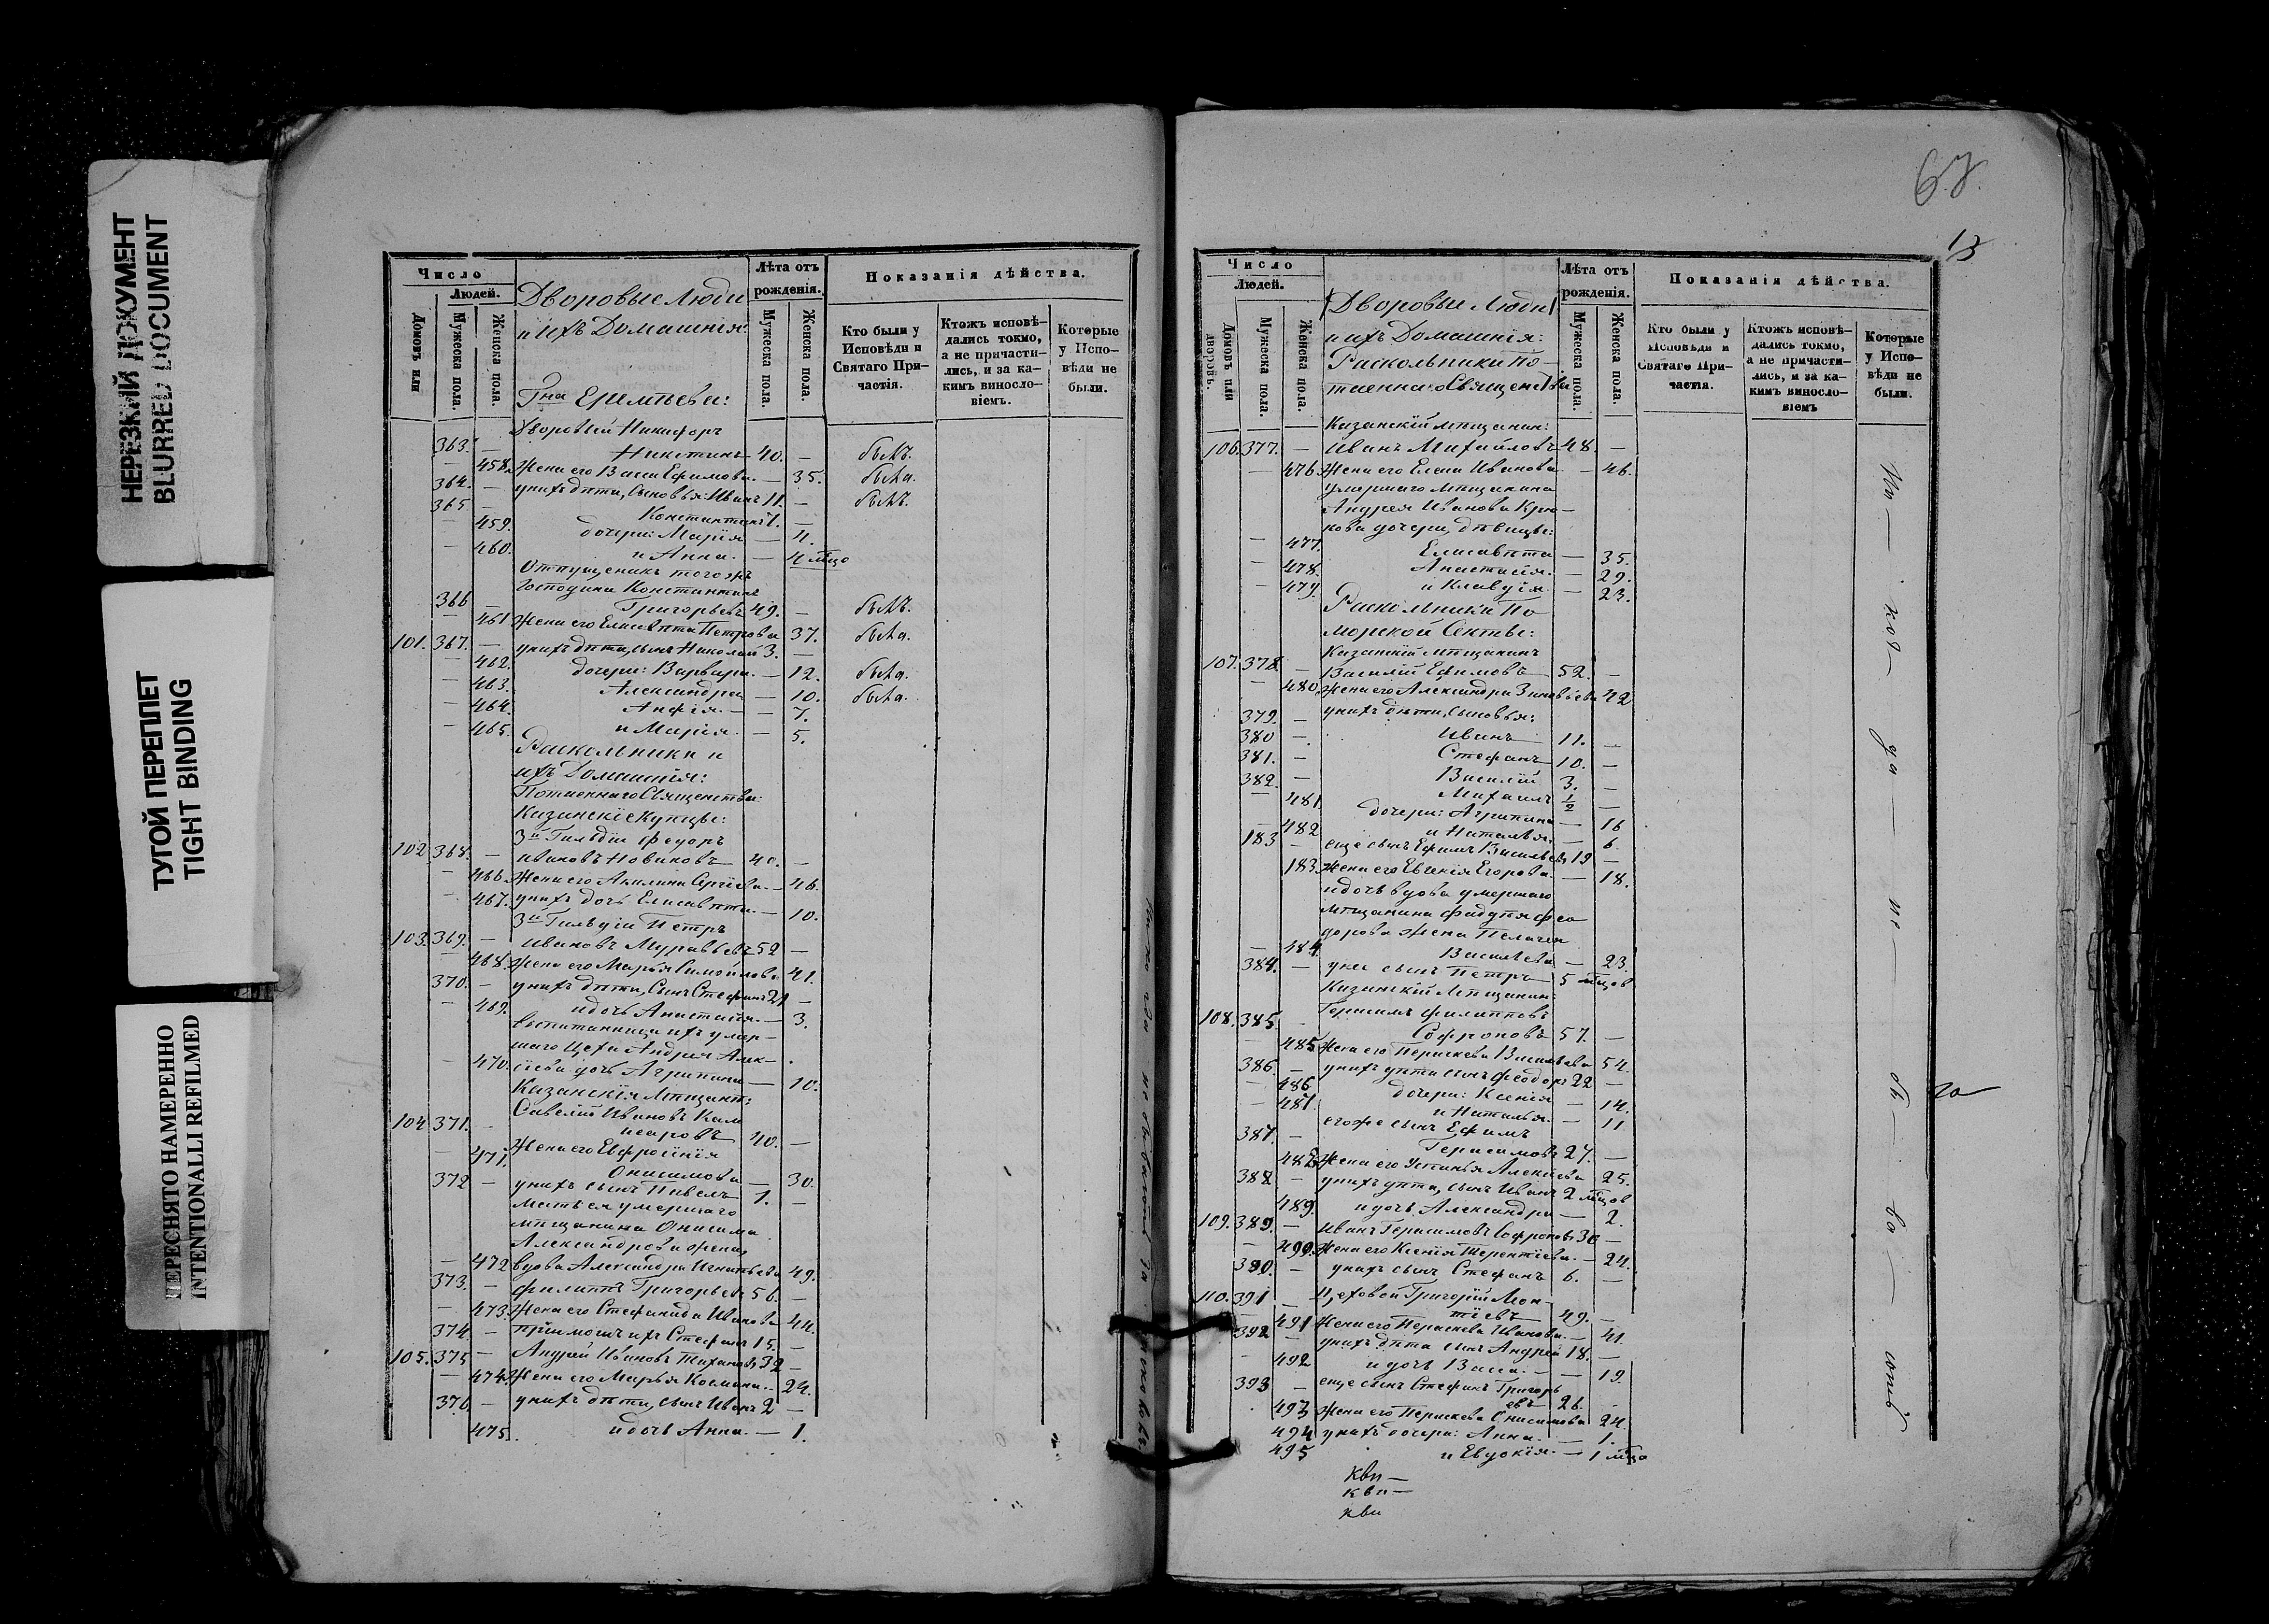 НЕРЕЗКИЙ ДОКУМЕНТ
BLURRED DOCUMENT
ТУГОЙ ПЕРЕПЛЕТ
TIGHT BINDING
ПЕРЕСНЯТО НАМЕРЕННО
INTENTIONALLI REFILMED
Число
Людей.
Домовъ или
Мужеска пола.
Женска пола.
Дворовые Люди
и ихъ Домашнія:
Гна Еремѣева:
Лѣта отъ рожденія.
Мужеска пола.
Женска пола.
Показанія дѣйства.
Кто были у Исповѣди и Святаго Причастія.
Ктожъ исповѣ-
дались токмо,
а не причасти-
лись, и за ка-
кимъ виносло-
віемъ.
Которые
у Испо-
вѣди не
были.
Дворовый Никифоръ
363. — Никитинъ 40. — былъ.
— 458. Жена его Васса Ефимова — 35. была.
364. — у нихъ дѣти, сыновья: Иванъ 11. — былъ.
365 — Константинъ 1. —
— 459. дочери: Марія — 4.
— 460. и Анна. — 4 мца
Отпущеникъ того жъ
Господина Константинъ
366 — Григорьевъ 49. — былъ.
— 461 Жена его Елисавета Петрова 37. была.
101. 367. — у нихъ дѣти, сынъ Николай 3. —
— 462. дочери: Варвара — 12. была.
— 463. Александра — 10. была.
— 464. Анфія — 7.
— 465. и Марія. — 5.
Раскольники и
ихъ Домашнія:
Потаеннаго Священства:
Казанскіе Купцы:
3й Гильдіи Федоръ
102 368. — Ивановъ Новиковъ 40. —
— 466. Жена его Акилина Сергіева — 46.
— 467. у нихъ дочь Елисавета — 10.
3й Гильдіи Петръ
103. 369. — Ивановъ Муравьевъ 52 —
— 468. Жена его Марья Самойлова 41.
370. — у нихъ дѣти, Сынъ Стефанъ 21 —
— 469. и дочь Анастасія — 3.
Воспитанница ихъ умер-
шаго Цехи Андрея Алек-
— 470. сѣева дочь Агрипина — 10.
Казанскія Мѣщане:
Савелій Ивановъ Ком
104 371. — исаровъ 40. —
— 471. Жена его Евфросинія
Онисимова — 30.
372 — у нихъ сынъ Павелъ 1. —
Мать ея умершаго
мѣщанина Онисима
Александрова жена
— 472 вдова Александра Игнатьева 49.
373. — Филиппъ Григорьевъ 56. —
— 473. Жена его Стефанида Иванова 44.
374. — пріимышъ ихъ Стефанъ 15. —
105. 375 — Андрей Ивановъ Тихановъ 32 —
— 474. Жена его Марья Космина — 24.
376. — у нихъ дѣти, сынъ Иванъ 2 —
475. и дочь Анна. — 1.
67.
13
Число
Людей.
Домовъ или
дворовъ.
Мужеска пола.
Женска пола.
Дворовые Люди
и ихъ Домашнія:
Раскольники По-
таеннаго Священства
Лѣта отъ рожденія.
Мужеска пола.
Женска пола.
Показанія дѣйства.
Кто были у Исповѣди и Святаго Причастія.
Ктожъ исповѣ-
дались токмо,
а не причасти-
лись, и за ка-
кимъ виносло-
віемъ
Которые
у Испо-
вѣди не
были.
Казанскій мѣщанин:
106. 377. — Иванъ Михайловъ 48. —
— 476. Жена его Елена Иванова — 46.
умершаго мѣщанина
Андрея Иванова Крю-
кова дочери, дѣвицы:
— 477. Елисавета — 35.
— 478. Анастасія. — 29.
— 479. и Клавдія — 23.
Раскольники По
морской Секты:
Казанскій мѣщанинъ
107. 378. — Василій Ефимовъ 52. —
— 480. Жена его Александра Зиновьева 42
379. — у нихъ дѣти, сыновья:
380 — Иванъ 11. —
381. — Стефанъ 10. —
382. — Василій 3. —
Михаилъ ½ —
— 481. дочери: Агрипина — 16
— 482 и Наталья. — 6.
183 — еще сынъ Ефимъ Васильевъ 19 —
183. Жена его Евгенія Егорова — 18.
и дочь вдова умершаго
мѣщанина Фадѣя Фео
дорова жена Пелагея
— 484. Васильева — 23.
384. — у нея сынъ Петръ 5 мцов
Казанскій Мѣщанин:
Герасимъ Филипповъ
108. 385. — Софроновъ 57. —
— 485. Жена его Параскева Васильева 54.
386. — у нихъ дѣти сынъ Феодоръ 22 —
— 486 дочери: Ксенія — 14.
— 487. и Наталья. — 11
387. — его же сынъ Ефимъ
Герасимовъ 27. —
488. Жена его Устинья Алексѣева 25.
388 — у нихъ дѣти, сынъ Иванъ 2 мцов
489. и дочь Александра — 2.
109. 389. — Иванъ Герасимовъ Софроновъ 30 —
490. Жена его Ксенія Терентіева — 24.
390. — у нихъ сынъ Стефанъ 6. —
110. 391 — Цеховой Григорій Леон-
тіевъ 49. —
491 Жена его Параскева Иванова — 41
392 — у нихъ дѣти сынъ Андрей 18. —
— 492 и дочь Васса — 19.
393 — еще сынъ Стефанъ Григорь
евъ 26.
493 Жена его Параскева Онисимова 24.
494 у нихъ дочери: Анна — 1.
495 и Евдокія. — 1 мца
кви —
кви —
кви